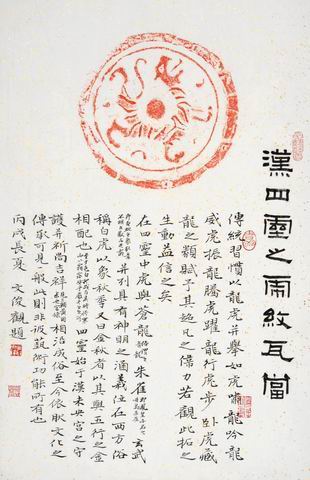 漢四靈之虎紋瓦當
傳統習慣以龍虎并舉如虎嘯龍吟龍
威虎振龍騰虎躍龍行虎步卧虎藏
龍之類賦予其超凡之偉力若觀此拓之
生動益信之矣
在四靈中虎與蒼龍 朱雀 玄武
并列具有神明之涵義往在西方俗
稱白虎以象秋季又曰金秋者以其與五行之金
相配也 四靈始于漢未央宮之守
護并祈尚吉祥 相沿成俗至今依然文化之
傳承可見一般此則非被藝術功能所有也
丙戌長夏 文俊觀題